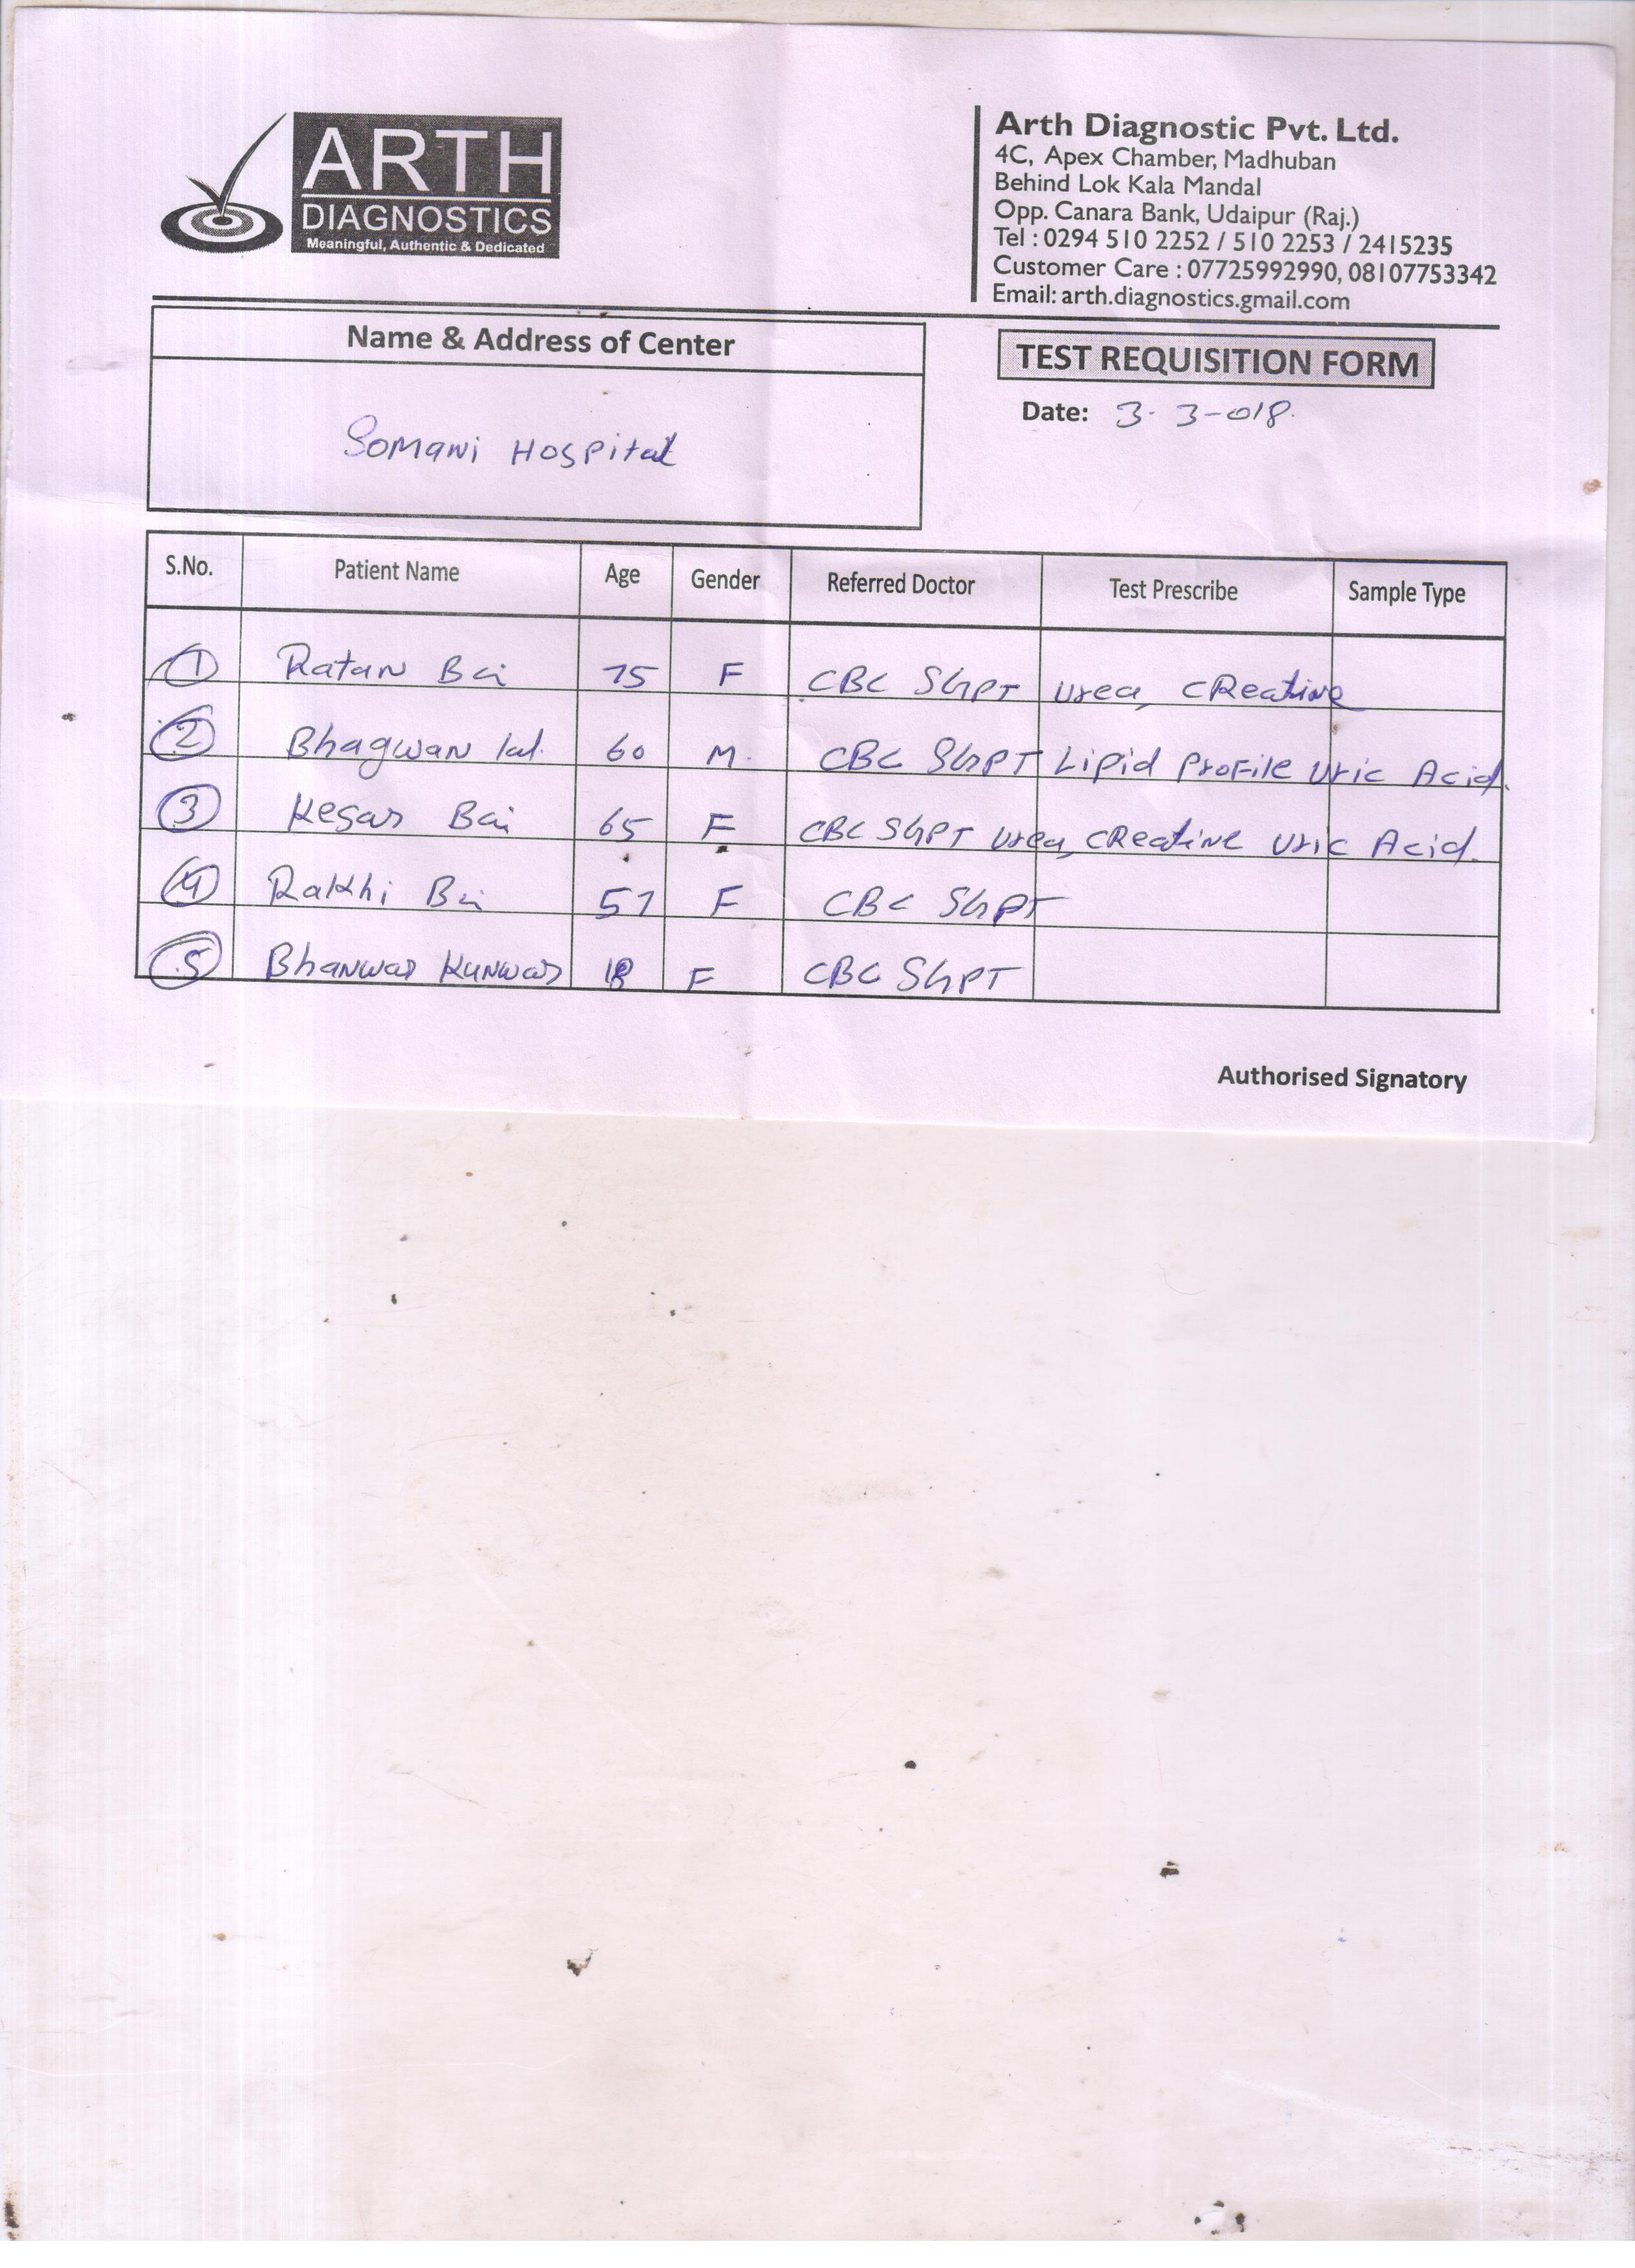 ARTH
DIAGNOSTICS
Meaningful, Authentic & Dedicated
Arth Diagnostic Pvt. Ltd.
4C, Apex Chamber, Madhuban
Behind Lok Kala Mandal
Opp. Canara Bank, Udaipur (Raj.)
Tel : 0294 510 2252 / 510 2253 / 2415235
Customer Care : 07725992990, 08107753342
Email: arth.diagnostics.gmail.com
Name & Address of Center
Somani Hospital
TEST REQUISITION FORM
Date: 3-3-018.
S.No. Patient Name Age Gender Referred Doctor Test Prescribe Sample Type
1 Ratan Bai 75 F CBC SGPT Urea, CReatine
2 Bhagwan lal. 60 M. CBC SGPT Lipid Profile Uric Acid.
3 Kesar Bai 65 F CBC SGPT Urea, CReatine Uric Acid.
4 Rakhi Bai 57 F CBC SGPT
5 Bhanwar Kunwar 18 F CBC SGPT
Authorised Signatory